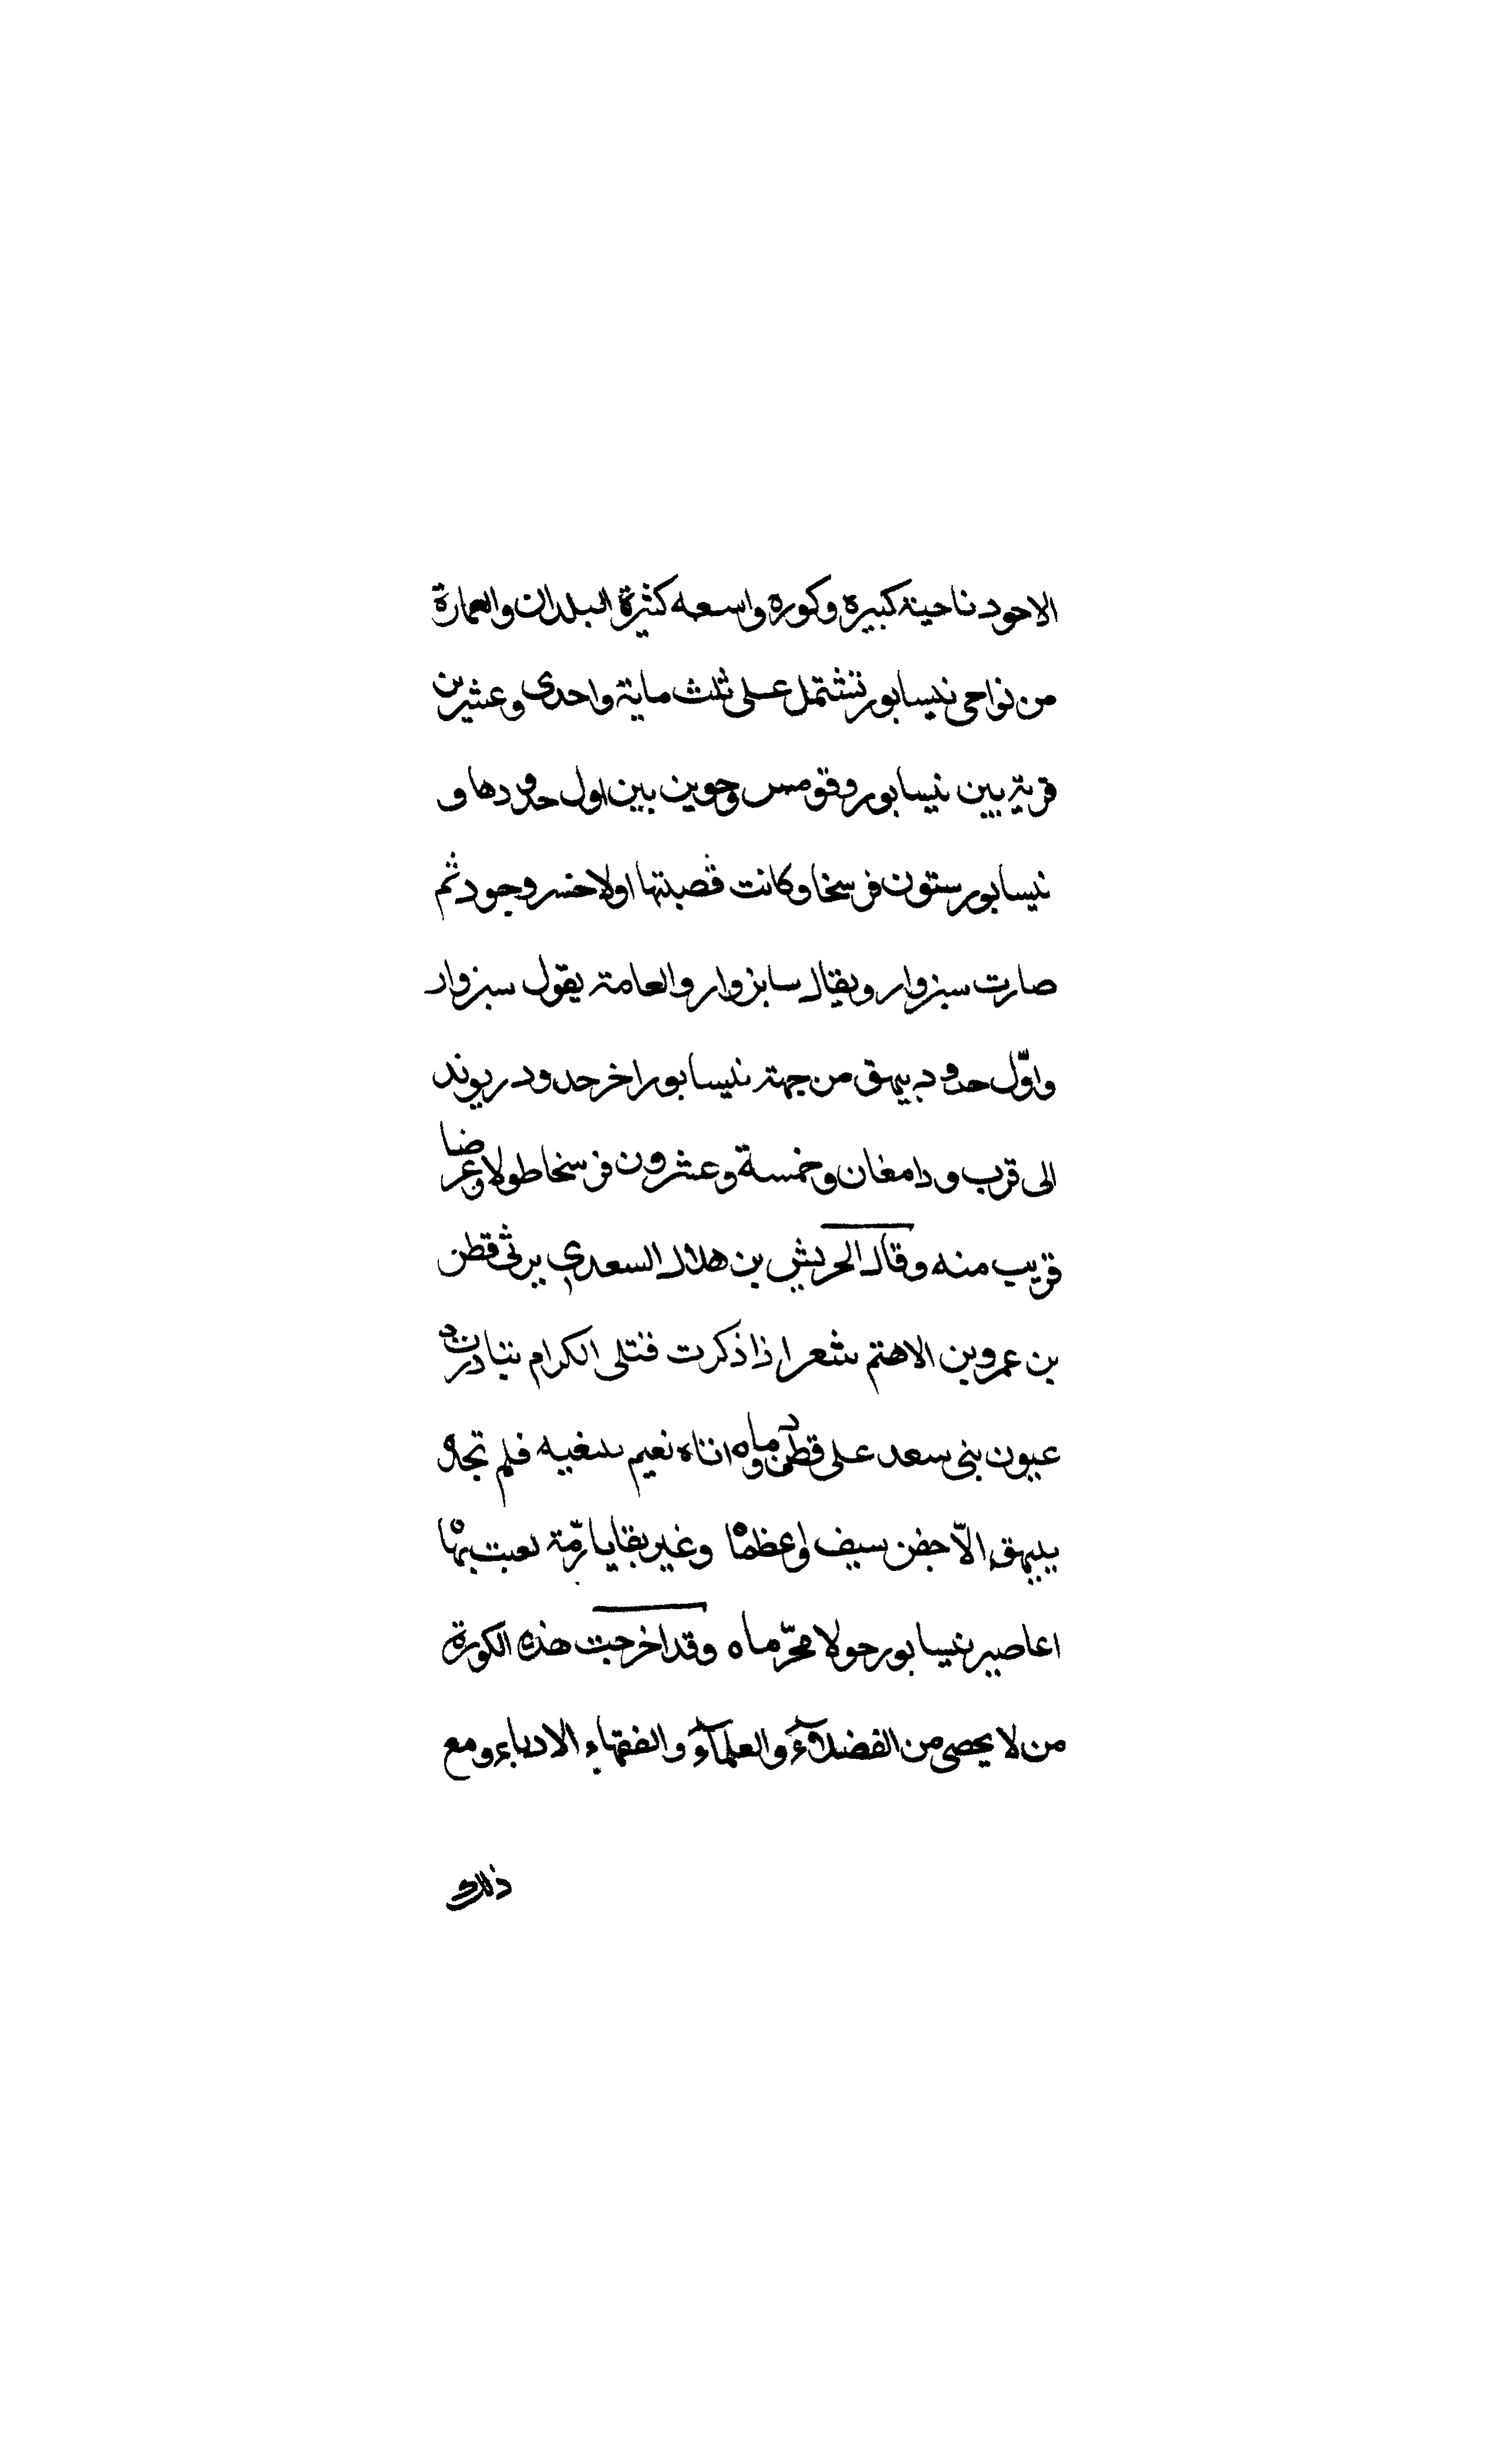 الاحود ناحية كبيره وكوره واسعه كثيرة البلدان والعمارة
من نواحى نيسابور تشتمل على ثلث ماية واحدى وعشرين
قرية بين نيسابور وقومس وجوين بين اول حدودها و
نيسابور ستون فرسخا وكانت قصبتها اولا خسروجود ثم
صارت سبزوار ويقال سابزوار والعامة يقول سبزوار
واوّل حدود بيهق من جهة نيسابور اخر حدود ريوند
الى قرب ودامغان وخمسة وعشرون فرسخا طولا وعرضا
قريب منه وقال الحريش بن هلال السعدي يرثى قطن
بن عمرو بن الاهتم شعر اذا ذكرت قتلى الكرام تبادرت
عيون بنى سعد على قطن دماه اتاه نعيم يبتغيه فلم تجد
ببيهق الّا جفن سيف واعظما وغير بقايا رمّة لعبت بها
اعاصير نيسابور حولا محرّماه وقد اخرجت هذه الكورة
من لا يحصى من الفضلآء والعلمآء والفقهاء الادباء ومع
ذلك